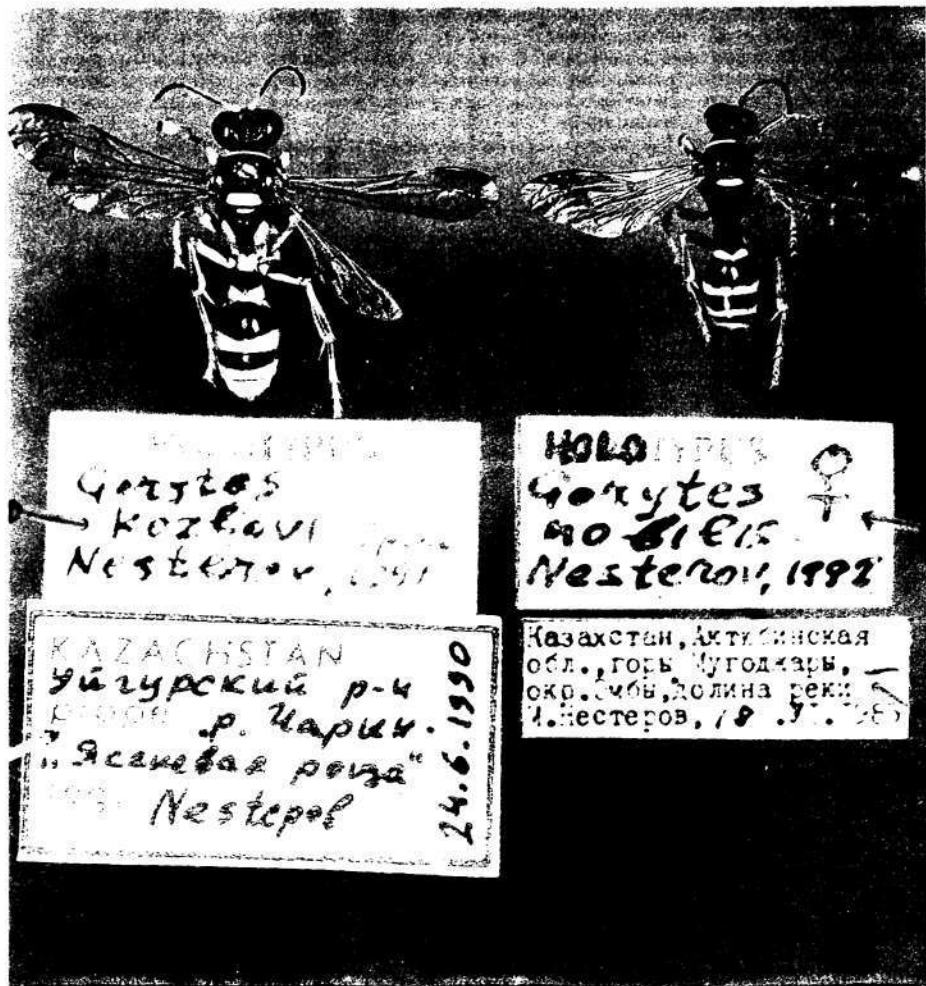 Gorytes
kozlovi
Nesterov,
KAZACHSTAN
Уйгурский р-н
р. Чарын.
"Ясеневая роща"
Nesterов
24.6.1990
HOLOTYPUS ♀
Gorytes
nobilis
Nesterov, 1992
Казахстан, Актюбинская
обл., горы Мугоджары,
око. Эмбы, долина реки
Нестеров, 18